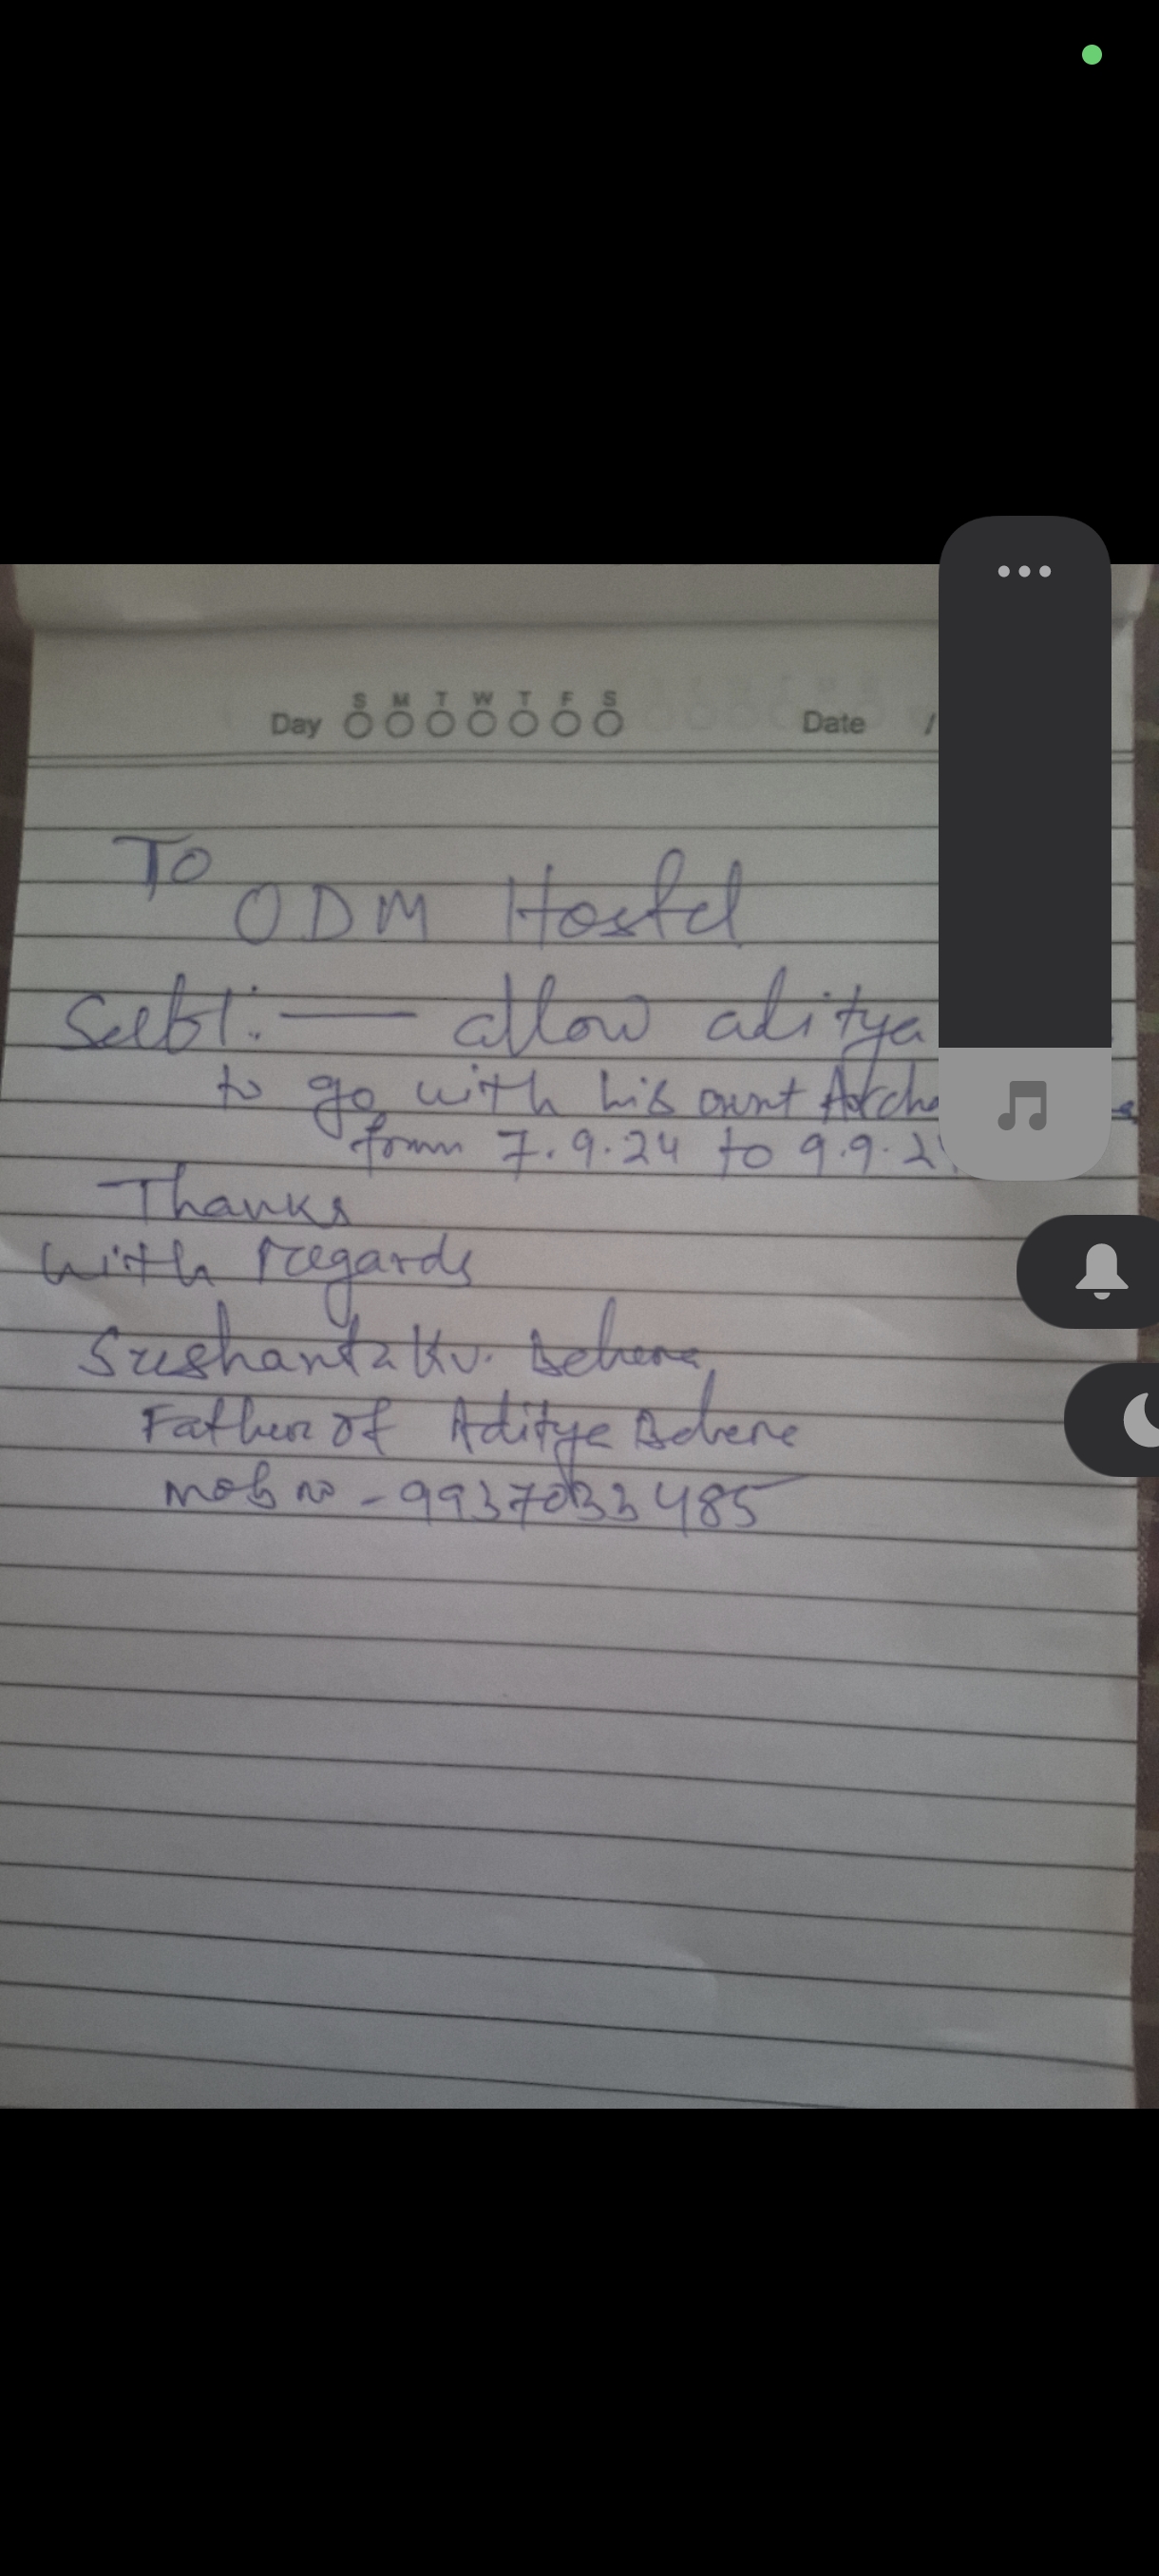 Day S M T W T F S Date /
To
ODM Hostel
Subt: — allow aditya
to go with his aunt
from 7.9.24 to 9.9.2
Thanks
with regards
Sushanta Ku. Behera
Father of Aditya Behera
mob no - 9937033485